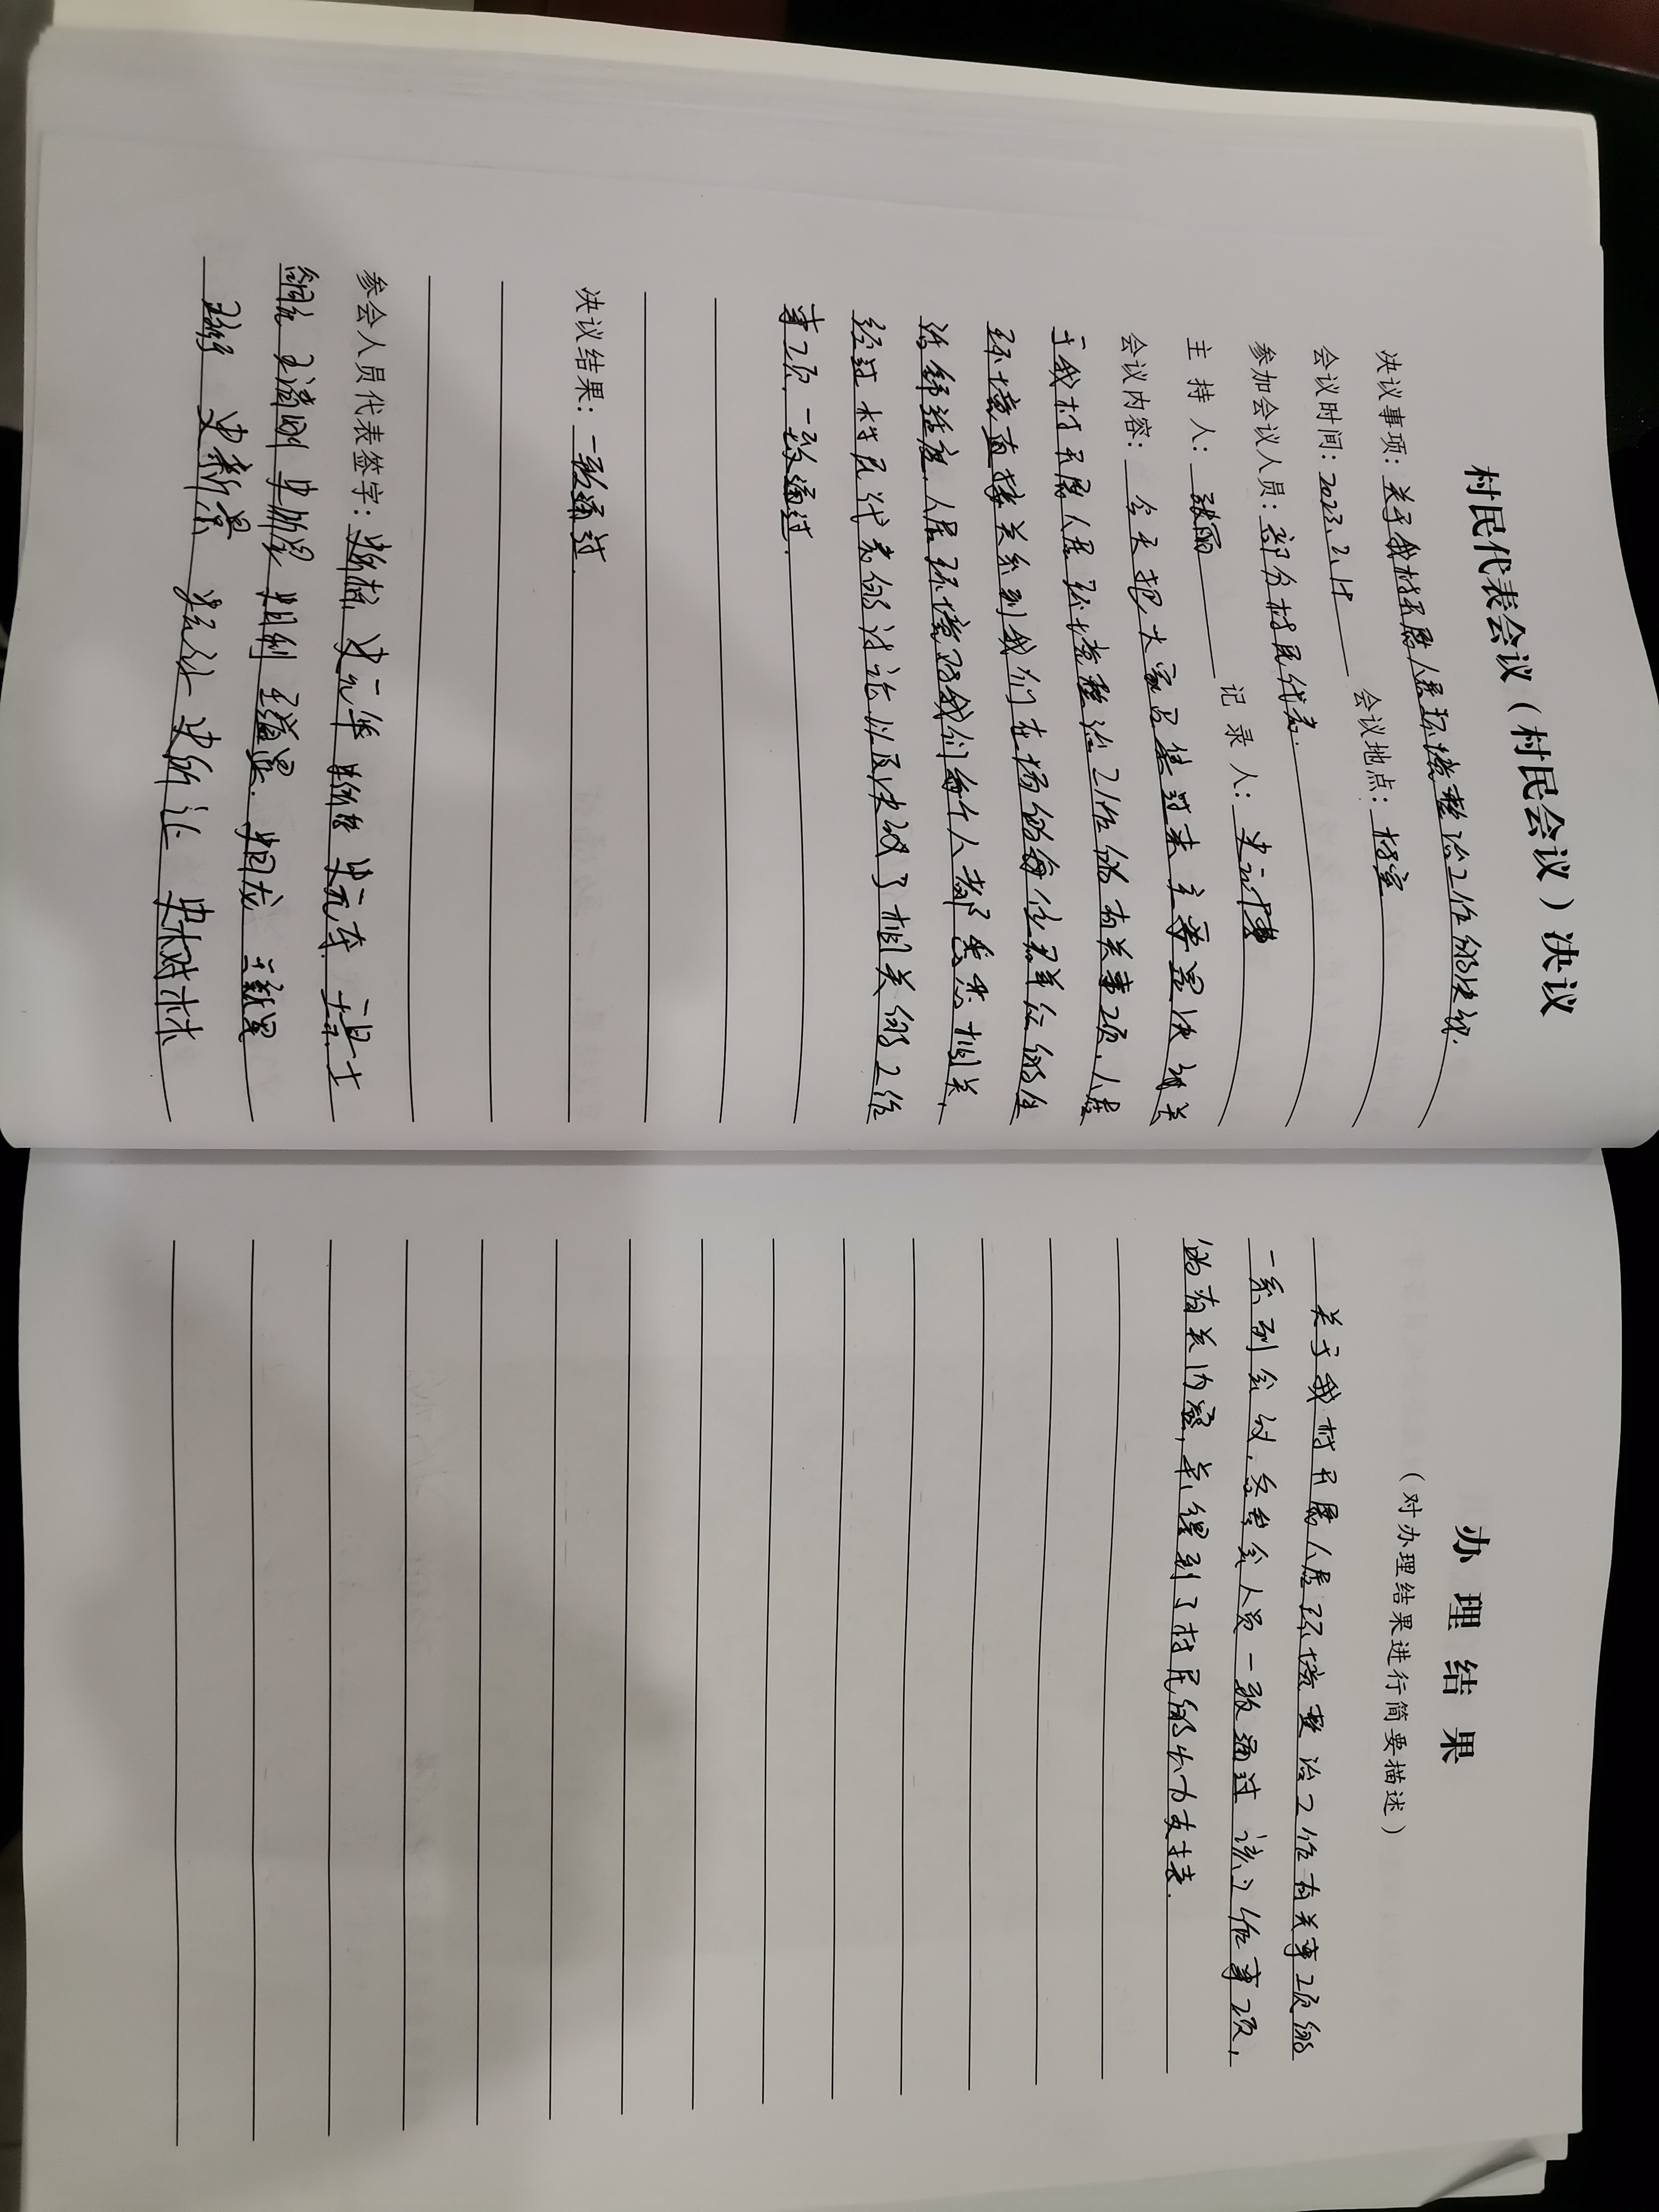 村民代表会议（村民会议）决议
决议事项：关于我村开展人居环境整治工作的决议.
会议时间：2023.2.14 会议地点：村室
参加会议人员：部分村民代表.
主 持 人：张丽 记 录 人：史云博
会议内容：今天把大家召集过来主要是决议关
于我村开展人居环境整治工作的有关事项.人居
环境直接关系到我们在场的每位群众的生
活舒适度.人居环境对我们每个人都息息相关,
经过村民代表的讨论以及决议了相关的工作
事项.一致通过.
决议结果：一致通过.
参会人员代表签字：史元华 史元存. 王景士
王清刚 史所星 史自利 王道显. 史同龙 王新军
史新景 史所让 史树林
办 理 结 果
（对办理结果进行简要描述）
关于我村开展人居环境整治工作有关事项的
一系列会议,各参会人员一致通过该工作事项,
的有关内容,并得到了村民的大力支持.